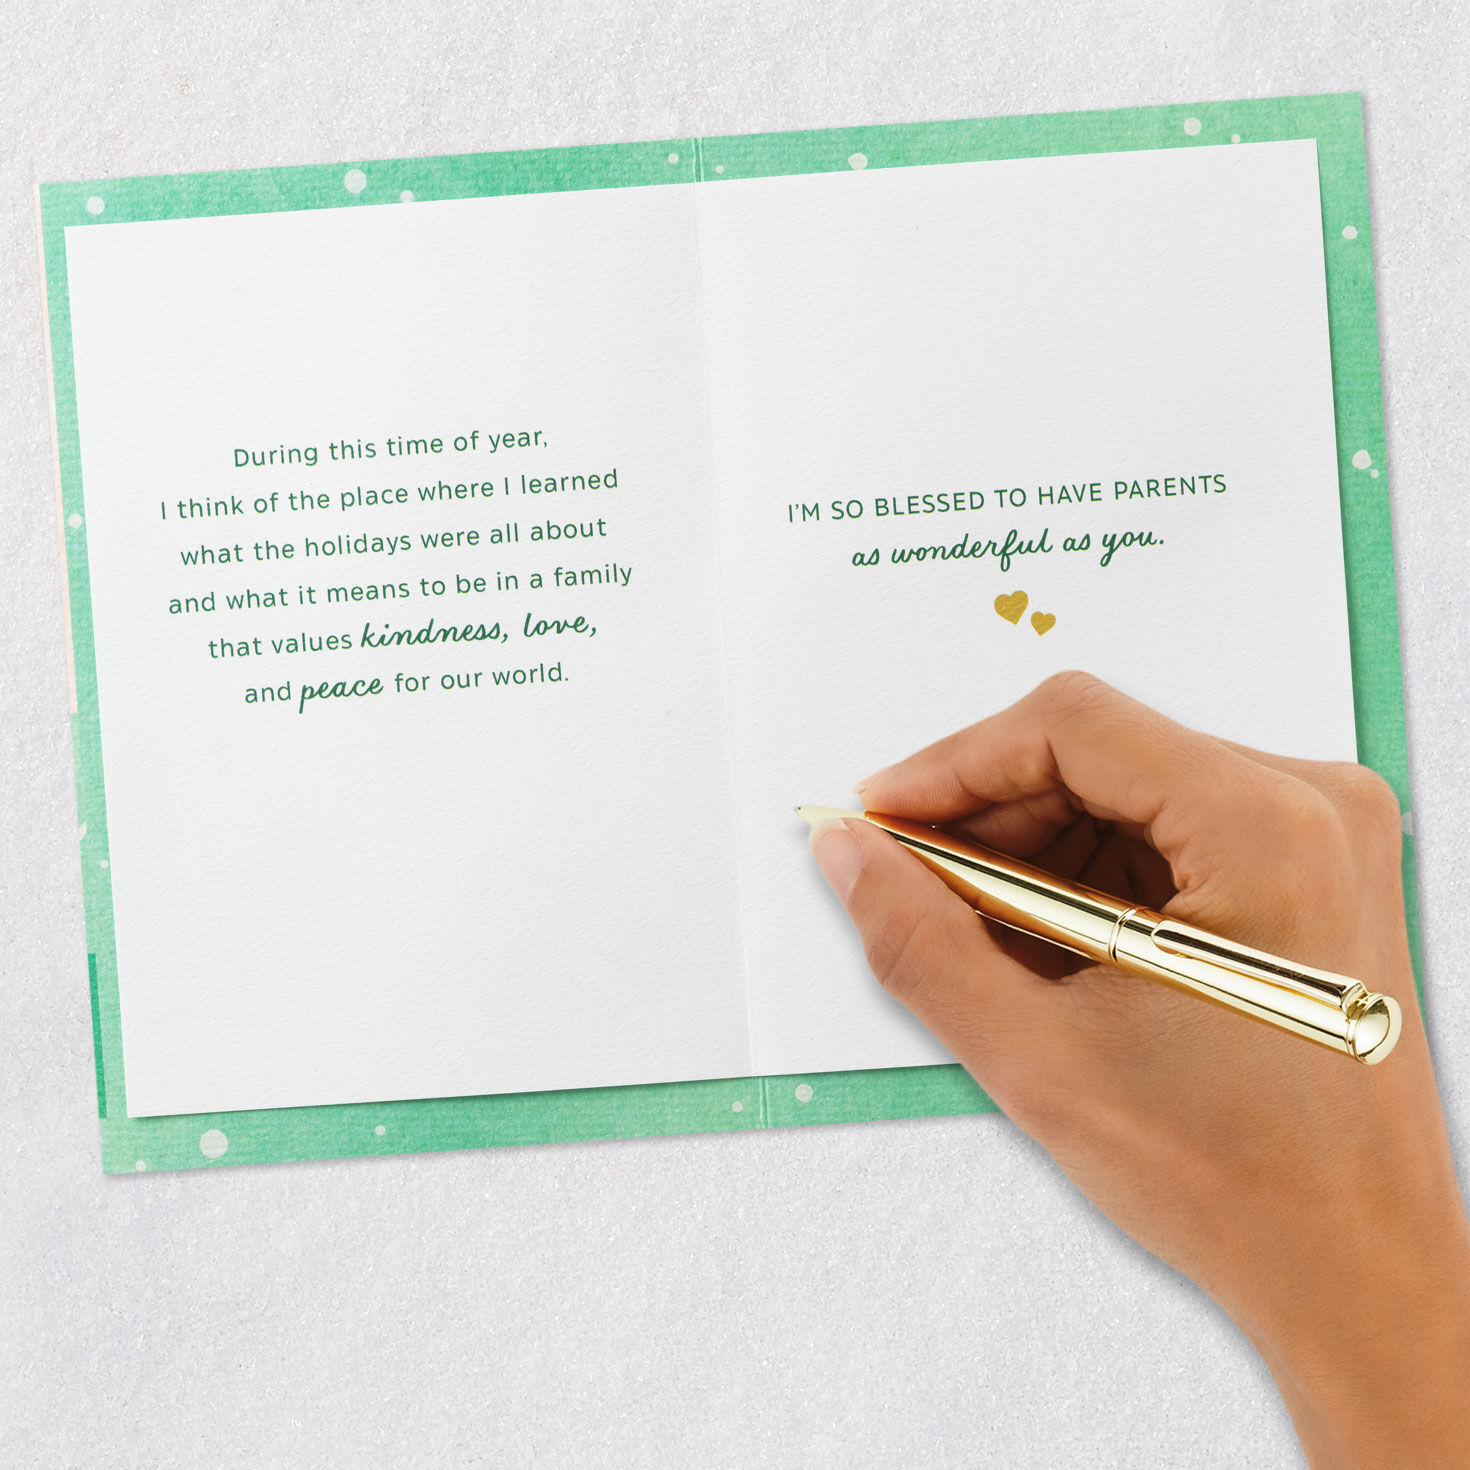 During this time of year,
I think of the place where I learned
what the holidays were all about
and what it means to be in a family
that values kindness, love,
and peace for our world.
I'M SO BLESSED TO HAVE PARENTS
as wonderful as you.